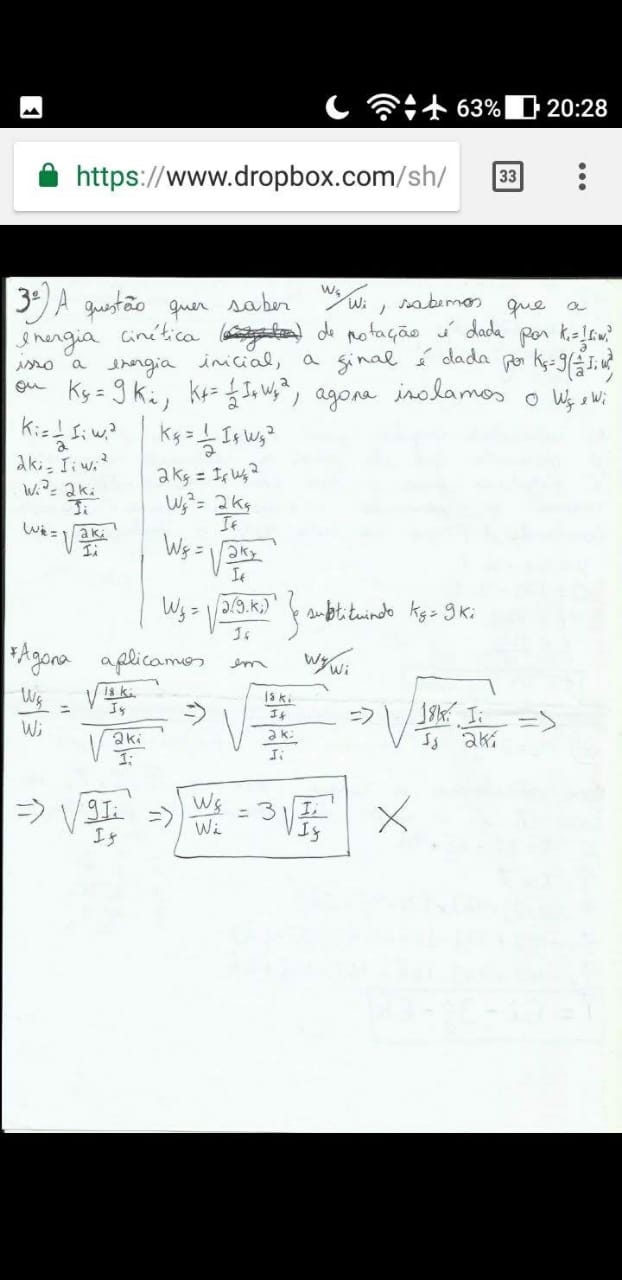 63% 20:28
https://www.dropbox.com/sh/ 33
3º) A questão quer saber Wf/Wi, sabemos que a
energia cinética de rotação é dada por Ki=1/2 Ii wi²
isso a energia inicial, a final é dada por Kf=9(1/2 Ii wi²)
ou Kf = 9Ki, Kf=1/2 If Wf², agora isolamos o Wf e Wi
Ki=1/2 Ii wi²
2Ki=Ii wi²
Wi²=2Ki/Ii
Wi=√(2Ki/Ii)
Kf=1/2 If Wf²
2Kf=If Wf²
Wf²=2Kf/If
Wf=√(2Kf/If)
Wf=√(2(9.Ki)/If) } substituindo Kf=9Ki
*Agora aplicamos em Wf/Wi
Wf/Wi = √(18Ki/If)/√(2Ki/Ii) => √((18Ki/If)/(2Ki/Ii)) => √(18Ki/If . Ii/2Ki) =>
=> √(9Ii/If) => Wf/Wi = 3√(Ii/If) X